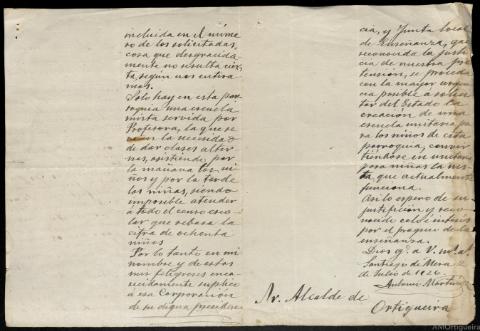 incluida en el núme-
ro de las solicitadas,
cosa que desgracia-
mente no resulta cier-
ta, según nos entera-
mos.
Solo hay en esta par-
roquia una escuela
mixta servida por
Profesora, la que se
en la necesidad
de dar clases alter-
nas, asistiendo por
la mañana los ni-
ños y por la tarde
las niñas, siendo
imposible atender
a todo el censo esco-
lar que rebasa la
cifra de ochenta
niños
Por lo tanto en mi
nombre y de estos
mis feligreses enca-
recidamente suplico
a esa Corporación
de su digna presiden-
cia, y Junta local
de Enseñanza, que
reconocida la justi-
cia de nuestra pre-
tensión, se proceda
con la mayor urgen-
cia posible a solici-
tar del Estado la
creación de una
escuela unitaria pa-
ra los niños de esta
parroquia, convir-
tiéndose en unitaria
para niñas la mix-
ta, que actualmente
funciona.
Así lo espero de su
justificación y recono-
cido celo e interés
por el progreso de la
enseñanza.
Dios g. a V. m. a.
Santiago de Mera, 2
de Julio de 1926.
Antonio Martínez
Sr. Alcalde de
Ortigueira
AMOrtigueira